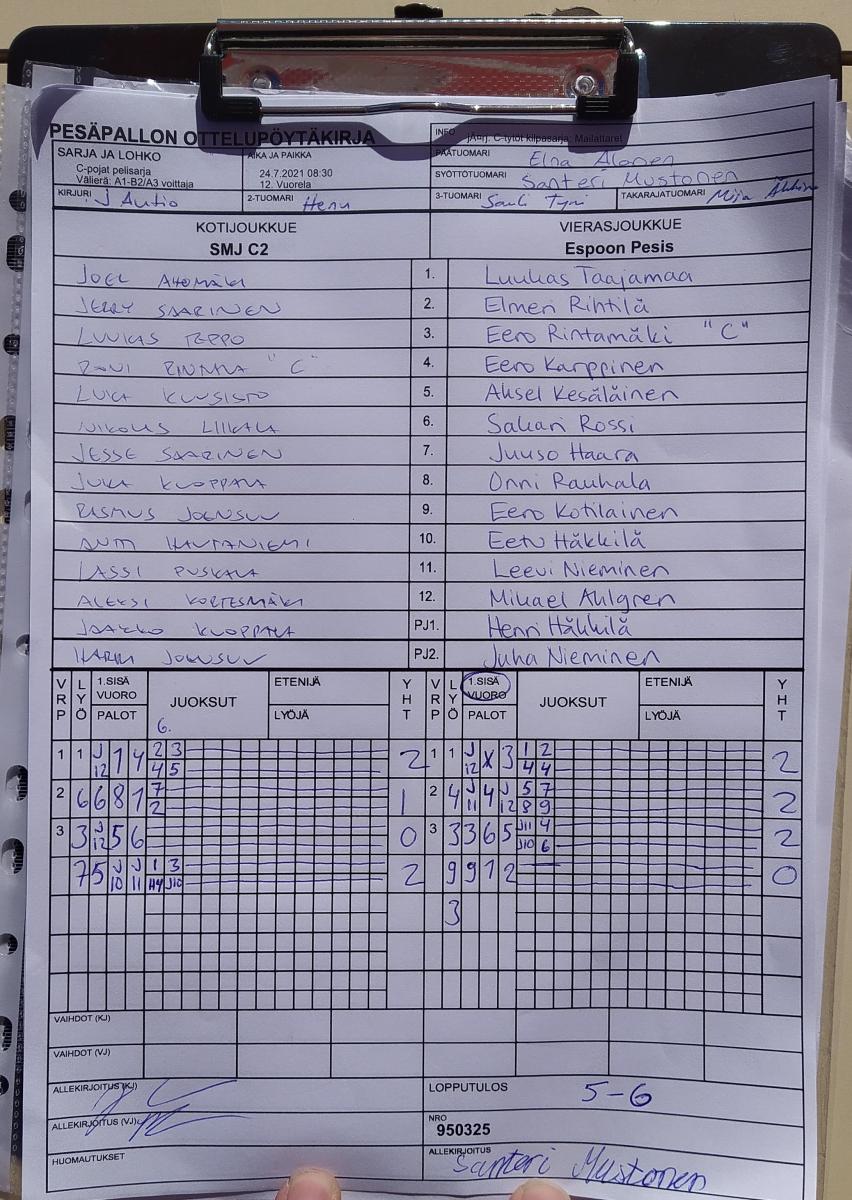 PESÄPALLON OTTELUPÖYTÄKIRJA
INFO järj: C-tytöt kilpasarja: Mailattaret
SARJA JA LOHKO
C-pojat pelisarja
Välierä: A1-B2/A3 voittaja
AIKA JA PAIKKA
24.7.2021 08:30
12. Vuorela
PÄÄTUOMARI Elna Alanen
SYÖTTÖTUOMARI Santeri Mustonen
KIRJURI J Autio
2-TUOMARI Henu
3-TUOMARI Sauli Tyni
TAKARAJATUOMARI Mija
KOTIJOUKKUE
SMJ C2
VIERASJOUKKUE
Espoon Pesis
JOEL AHOMÄKI 1. Luukas Taajamaa
JERRY SAARINEN 2. Elmeri Rihtilä
LUUKAS TEPPO 3. Eero Rintamäki "C"
"C" 4. Eero Karppinen
LUKA KUUSISTO 5. Aksel Kesäläinen
NIKOLAS 6. Sakari Rossi
JESSE SAARINEN 7. Juuso Haara
JUKA KUOPPALA 8. Onni Rauhala
RASMUS JOENSUU 9. Eero Kotilainen
ANTTI HAUTANIEMI 10. Eetu Häkkilä
LASSI PUSKALA 11. Leevi Nieminen
ALEKSI KORTESMÄKI 12. Mikael Ahlgren
JAAKKO KUOPPALA PJ1. Henri Häkkilä
HARRI JOENSUU PJ2. Juha Nieminen
VRP LYÖ 1.SISÄ VUORO PALOT JUOKSUT ETENIJÄ LYÖJÄ YHT VRP LYÖ 1.SISÄ VUORO PALOT JUOKSUT ETENIJÄ LYÖJÄ YHT
6.
1 1 J12 1 4 2 3 2 1 1 J12 X 3 1 2 2
4 5 4 4
2 6 6 8 1 7 1 2 4 J11 4 J12 5 7 2
2 8 9
3 3 J12 5 6 0 3 3 3 6 5 J11 4 2
J10 6
7 5 J10 J11 1 3 2 9 9 1 2 0
H4 J10
3
VAIHDOT (KJ)
VAIHDOT (VJ)
ALLEKIRJOITUS (KJ)
LOPPUTULOS 5-6
ALLEKIRJOITUS (VJ)
NRO
950325
HUOMAUTUKSET
ALLEKIRJOITUS Santeri Mustonen